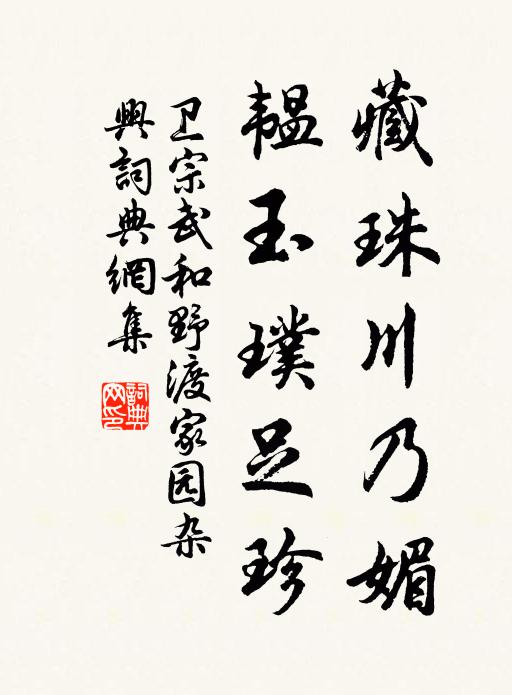 藏珠川乃媚
韫玉璞足珍
卫宗武和野渡家园杂
興詞典網集
詞典
网印